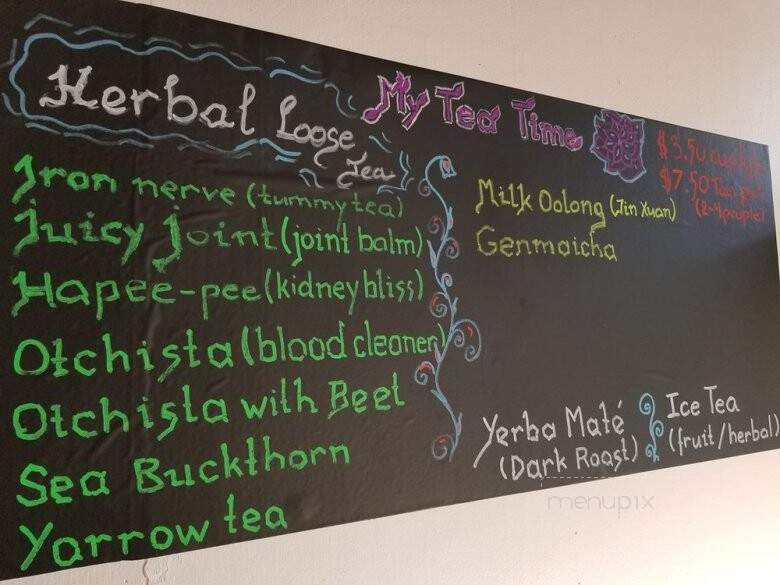 Herbal Loose
Tea
Iron nerve (tummy tea)
Juicy Joint (joint balm)
Hapee-pee (kidney bliss)
Otchista (blood cleaner)
Otchista with Beet
Sea Buckthorn
Yarrow tea
My Tea Time
$3.50
$7.50
(2-4 people)
Milk Oolong (Jin Xuan)
Genmaicha
Yerba Maté
(Dark Roast)
Ice Tea
(fruit/herbal)
menupix